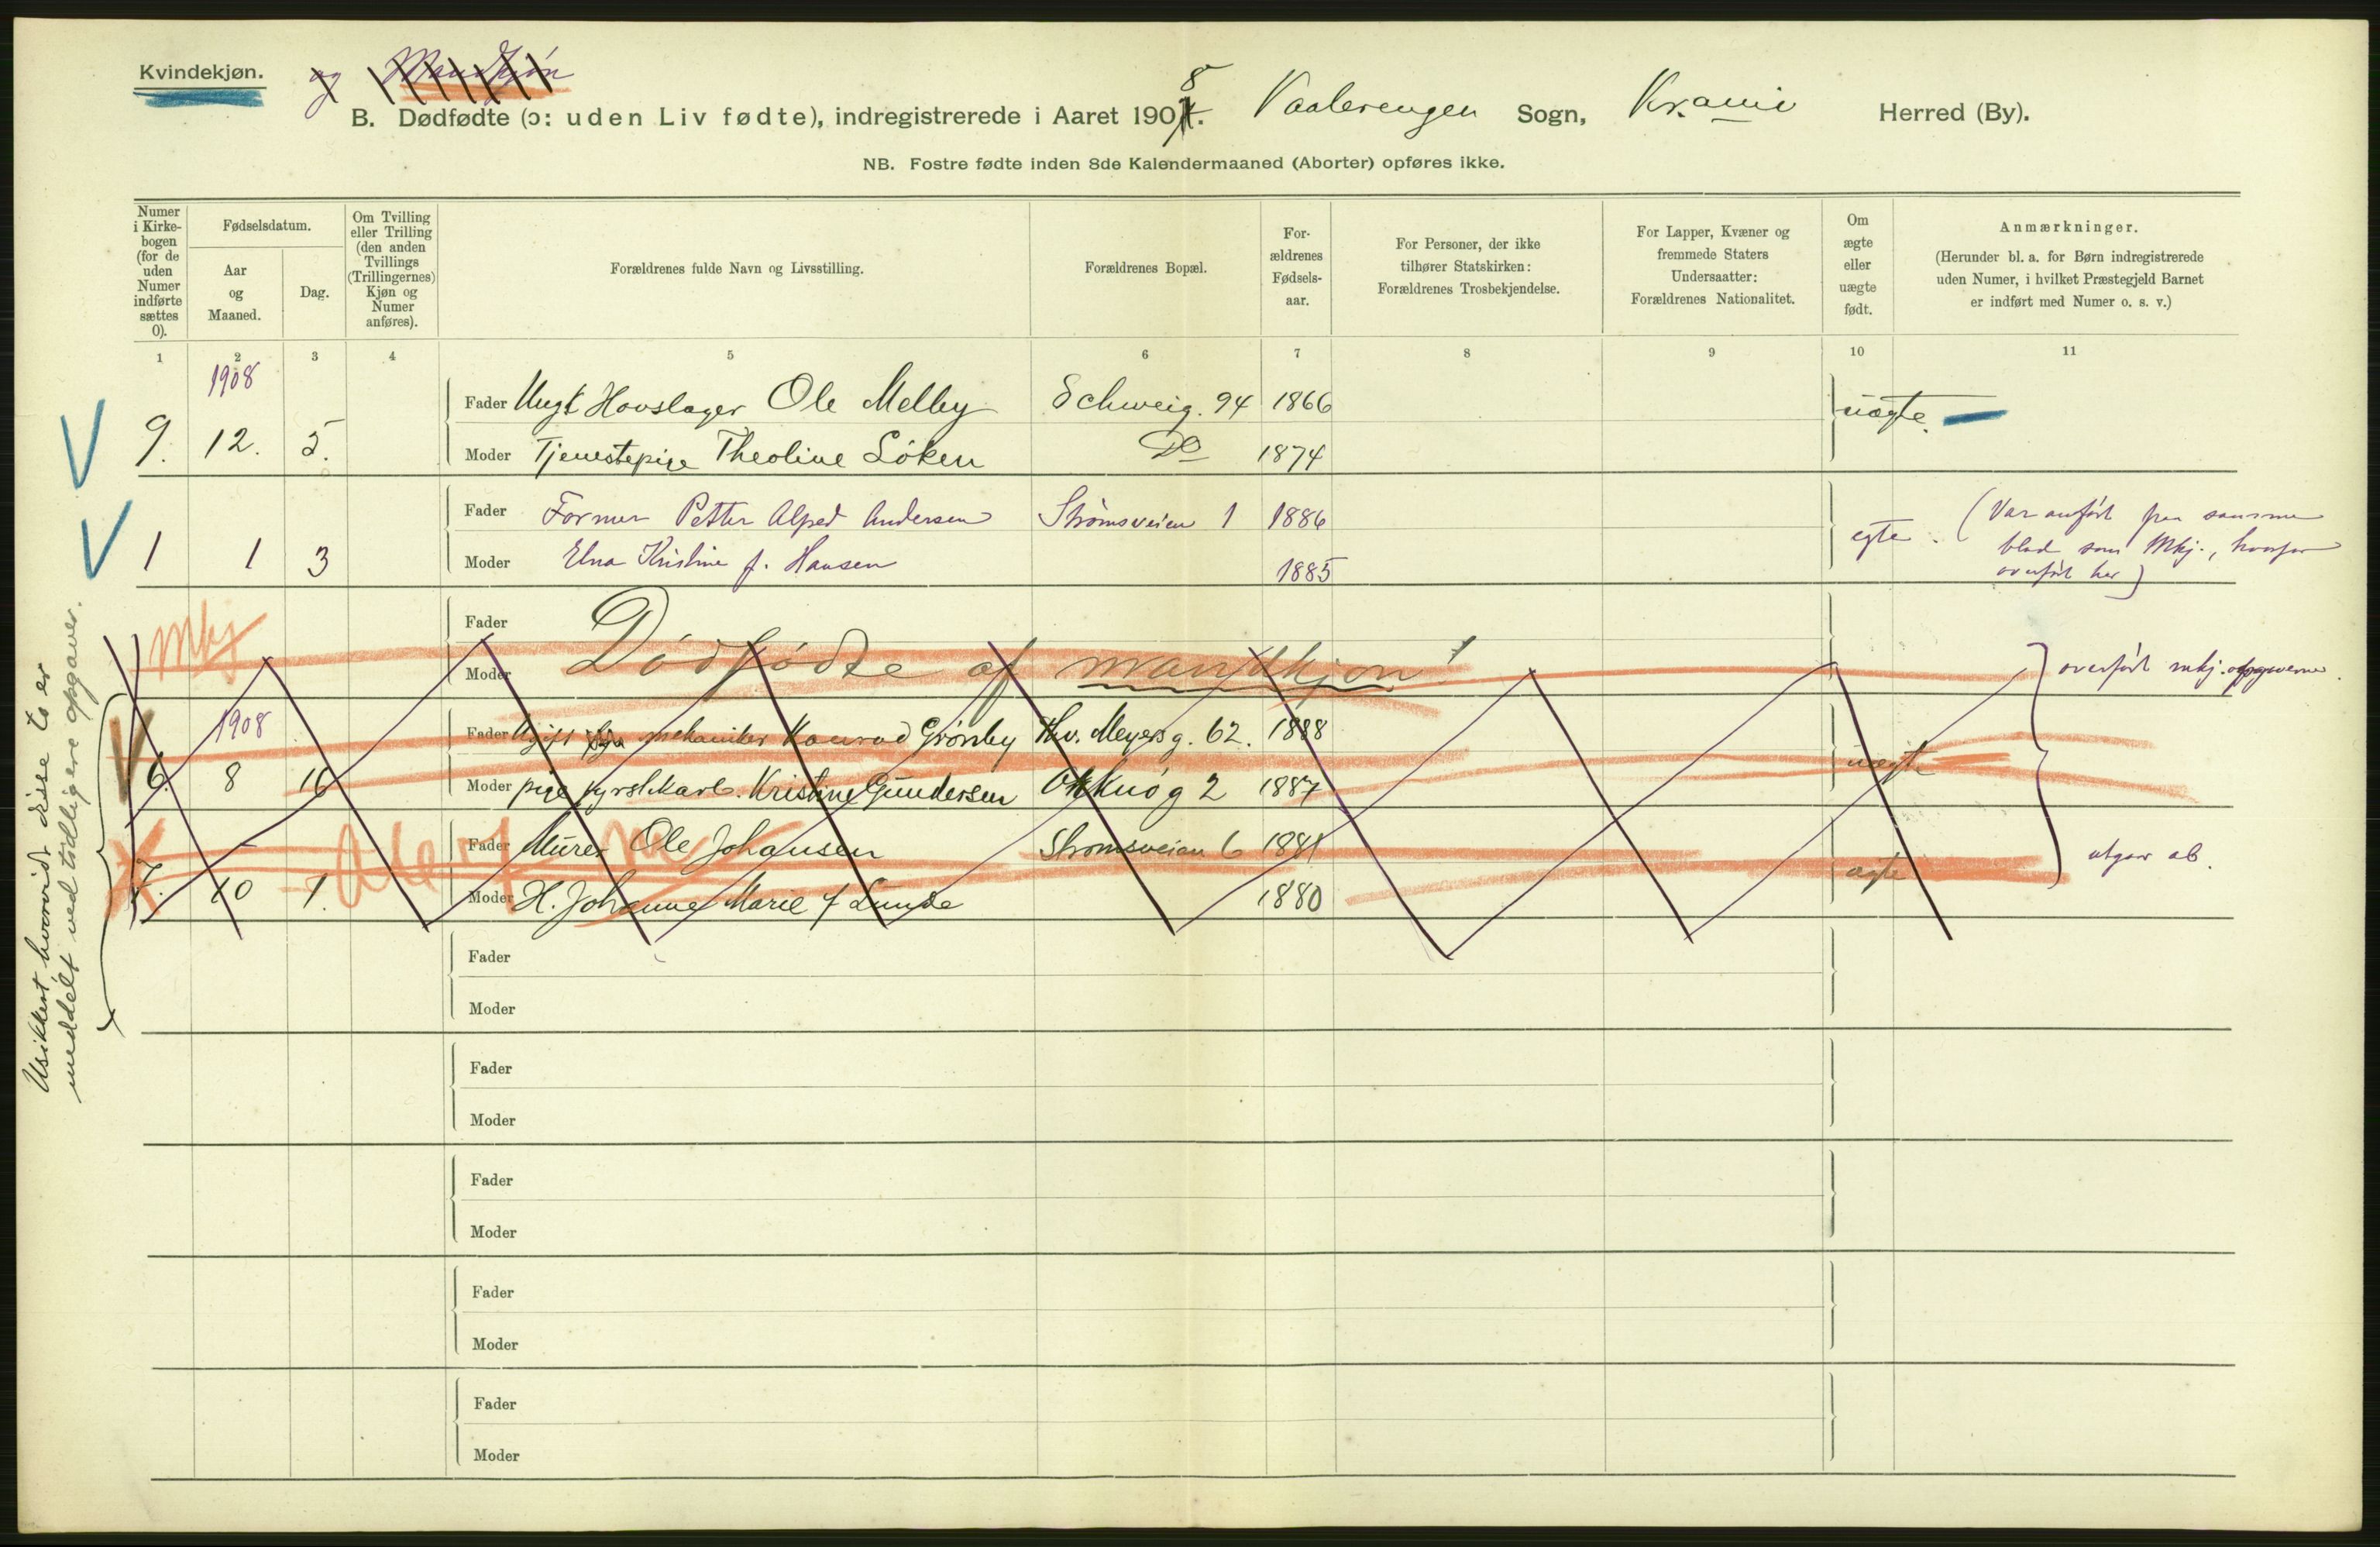 Kvindekjøn. og Mandkjøn
B. Dødfødte (ɔ: uden Liv fødte), indregistrerede i Aaret 1908. Vaalerengen Sogn, Kr.ania Herred (By).
NB. Fostre fødte inden 8de Kalendermaaned (Aborter) opføres ikke.
Numer
i Kirke-
bogen
(for de
uden
Numer
indførte
sættes
0).
Fødselsdatum.
Aar
og
Maaned.
Dag.
Om Tvilling
eller Trilling
(den anden
Tvillings
(Trillingernes)
Kjøn og
Numer
anføres).
Forældrenes fulde Navn og Livsstilling.
Forældrenes Bopæl.
For-
ældrenes
Fødsels-
aar.
For Personer, der ikke
tilhører Statskirken:
Forældrenes Trosbekjendelse.
For Lapper, Kvæner og
fremmede Staters
Undersaatter:
Forældrenes Nationalitet.
Om
ægte
eller
uægte
født.
Anmærkninger.
(Herunder bl. a. for Børn indregistrerede
uden Numer, i hvilket Præstegjeld Barnet
er indført med Numer o. s. v.)
1 2 3 4 5 6 7 8 9 10 11
1908
Fader Ungk Hovslager Ole Melby Schweig. 94 1866 uægte.
9. 12. 5. Moder Tjenestepige Theoline Løken Do 1874
Fader Former Petter Alfred Andersen Strømsveien 1 1886
1 1 3 Moder Elna Kristine f. Hansen 1885 egte.
(Var anført paa samme
blad som Mkj., hvorfor
overført her)
Mkj
Fader
Moder
Dødfødte af mandkjøn!
overført mkj. opgaverne.
1908
Fader Ugift mekaniker Konrad Grønby Thv. Meyersg. 62. 1888
6. 8 16 Moder pige Kristine Gundersen 2 1887 uægte
Fader Murer Ole Johansen Strømsveien 6 1881
7. 10 1. Moder H. Johanne Marie f Lunde 1880 ægte
utgaar ab.
Usikkert hvorvidt disse to er
meddelt ved tidligere opgaver.
Fader
Moder
Fader
Moder
Fader
Moder
Fader
Moder
Fader
Moder